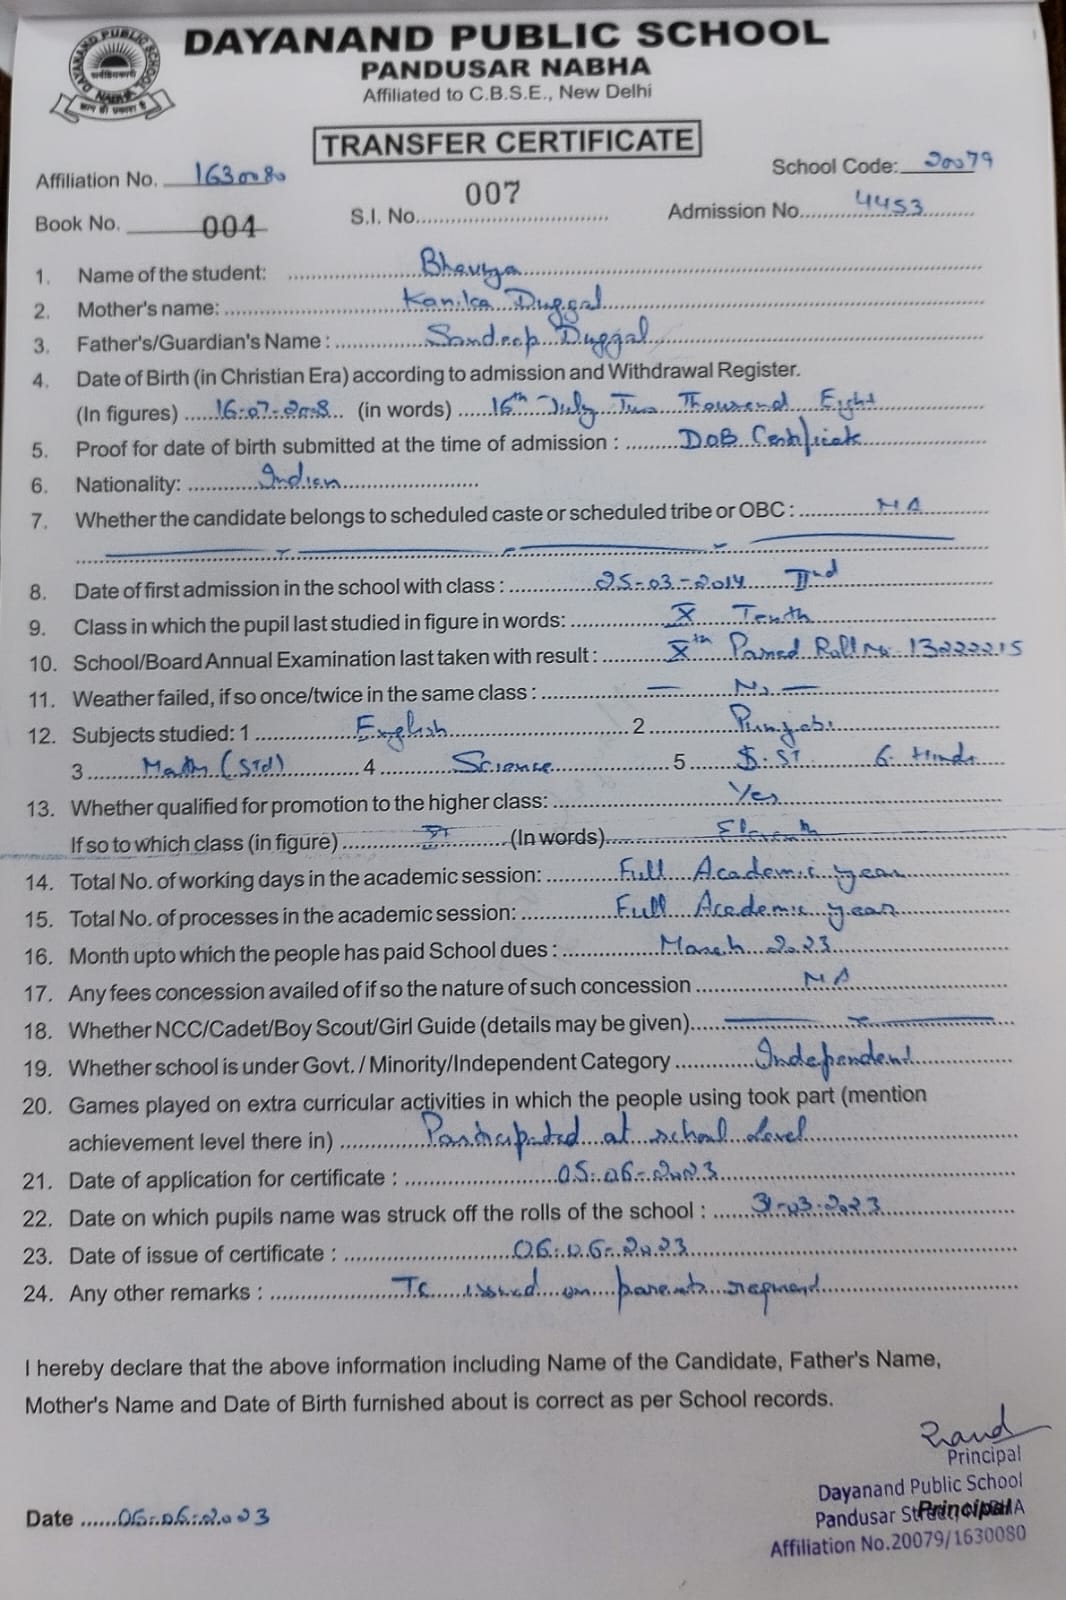 DAYANAND PUBLIC SCHOOL
PANDUSAR NABHA
Affiliated to C.B.S.E., New Delhi
TRANSFER CERTIFICATE
Affiliation No. 1630080 School Code: 20079
Book No. 004 S.I. No. 007 Admission No. 4453
1. Name of the student: Bhavya
2. Mother's name: Kanika Duggal
3. Father's/Guardian's Name : Sandeep Duggal
4. Date of Birth (in Christian Era) according to admission and Withdrawal Register.
(In figures) 16-07-2008 (in words) 16th July Two Thousend Eight
5. Proof for date of birth submitted at the time of admission : DOB Certificate
6. Nationality: Indian
7. Whether the candidate belongs to scheduled caste or scheduled tribe or OBC : NA
8. Date of first admission in the school with class : 25-03-2014 IInd
9. Class in which the pupil last studied in figure in words: X Tenth
10. School/Board Annual Examination last taken with result : Xth Passed Roll No. 13222215
11. Weather failed, if so once/twice in the same class : — No —
12. Subjects studied: 1 English 2 Punjabi
3 Math (Std) 4 Science 5 S.ST 6. Hindi
13. Whether qualified for promotion to the higher class: Yes
If so to which class (in figure) XI (In words) Eleventh
14. Total No. of working days in the academic session: Full Academic year
15. Total No. of processes in the academic session: Full Academic year
16. Month upto which the people has paid School dues : March 2023
17. Any fees concession availed of if so the nature of such concession NA
18. Whether NCC/Cadet/Boy Scout/Girl Guide (details may be given)
19. Whether school is under Govt. / Minority/Independent Category Independent
20. Games played on extra curricular activities in which the people using took part (mention
achievement level there in) Participated at school level
21. Date of application for certificate : 05-06-2023
22. Date on which pupils name was struck off the rolls of the school : 31-03-2023
23. Date of issue of certificate : 06-06-2023
24. Any other remarks : Tc issued on parents request
I hereby declare that the above information including Name of the Candidate, Father's Name,
Mother's Name and Date of Birth furnished about is correct as per School records.
Principal
Dayanand Public School
Date 06-06-2023 Pandusar Principal
Affiliation No.20079/1630080